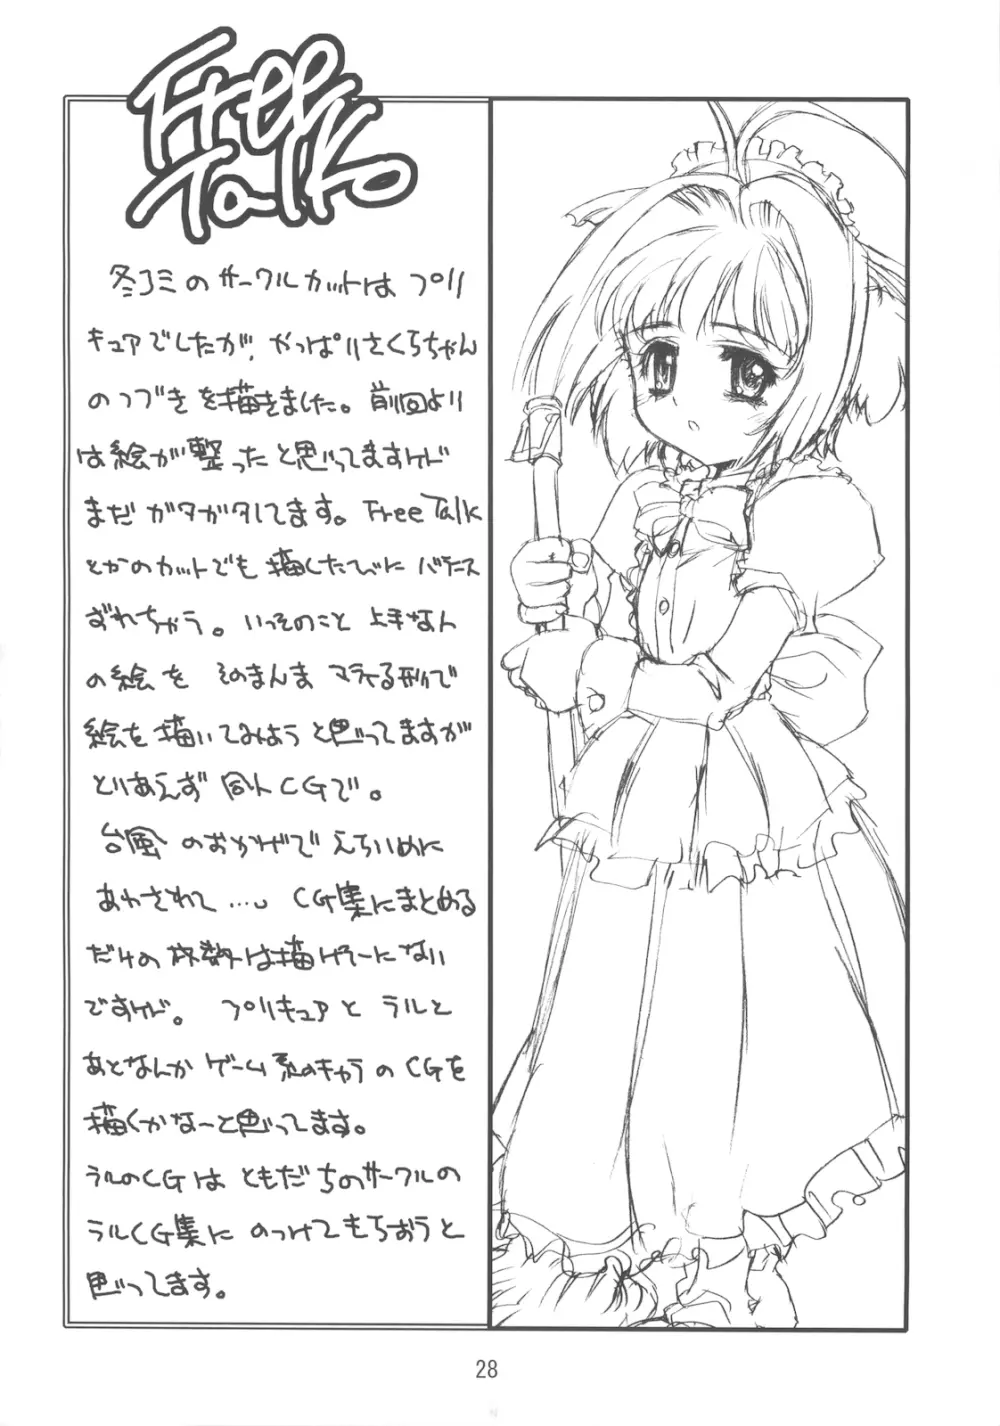 Free
Talk
冬コミのサークルカットは プリ
キュアでしたが、やっぱりさくらちゃん
のつづきを描きました。前回より
は絵が整ったと思ってますけど
まだガタガタしてます。Free Talk
とかのカットでも描くたびにバランス
ずれちゃう。いっそのこと上手な人
の絵を そのまんま マネる形で
絵を描いてみようと思ってますが
とりあえず 同人CGで。
台風 のおかげで えらいめに
あわされて … CG集にまとめる
だけの枚数は描けそーにない
ですけど。 プリキュアと ラルと
あとなんか ゲーム系のキャラのCGを
描くかなーと思ってます。
ラルのCGは ともだちのサークルの
ラルCG集に のっけてもらおうと
思ってます。
28